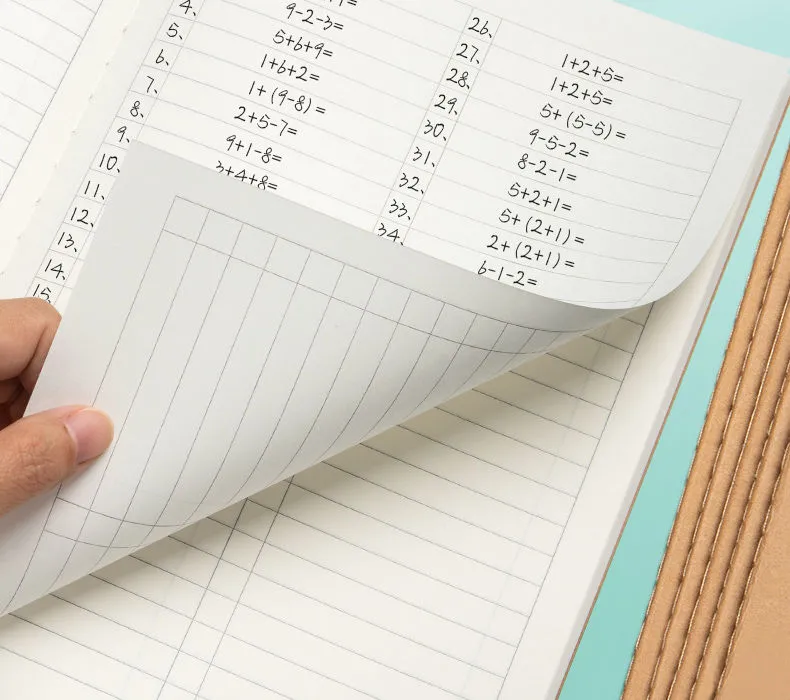 9-2-3=
4、 5+6+9=
5、 1+6+2=
6、 1+(9-8)=
7、 2+5-7=
8、 9+1-8=
9、 3+4+8=
10、
11、
12、
13、
14、
15、
26、 1+2+5=
27、 1+2+5=
28、 5+(5-5)=
29、 9-5-2=
30、 8-2-1=
31、 5+2+1=
32、 5+(2+1)=
33、 2+(2+1)=
34、 6-1-2=